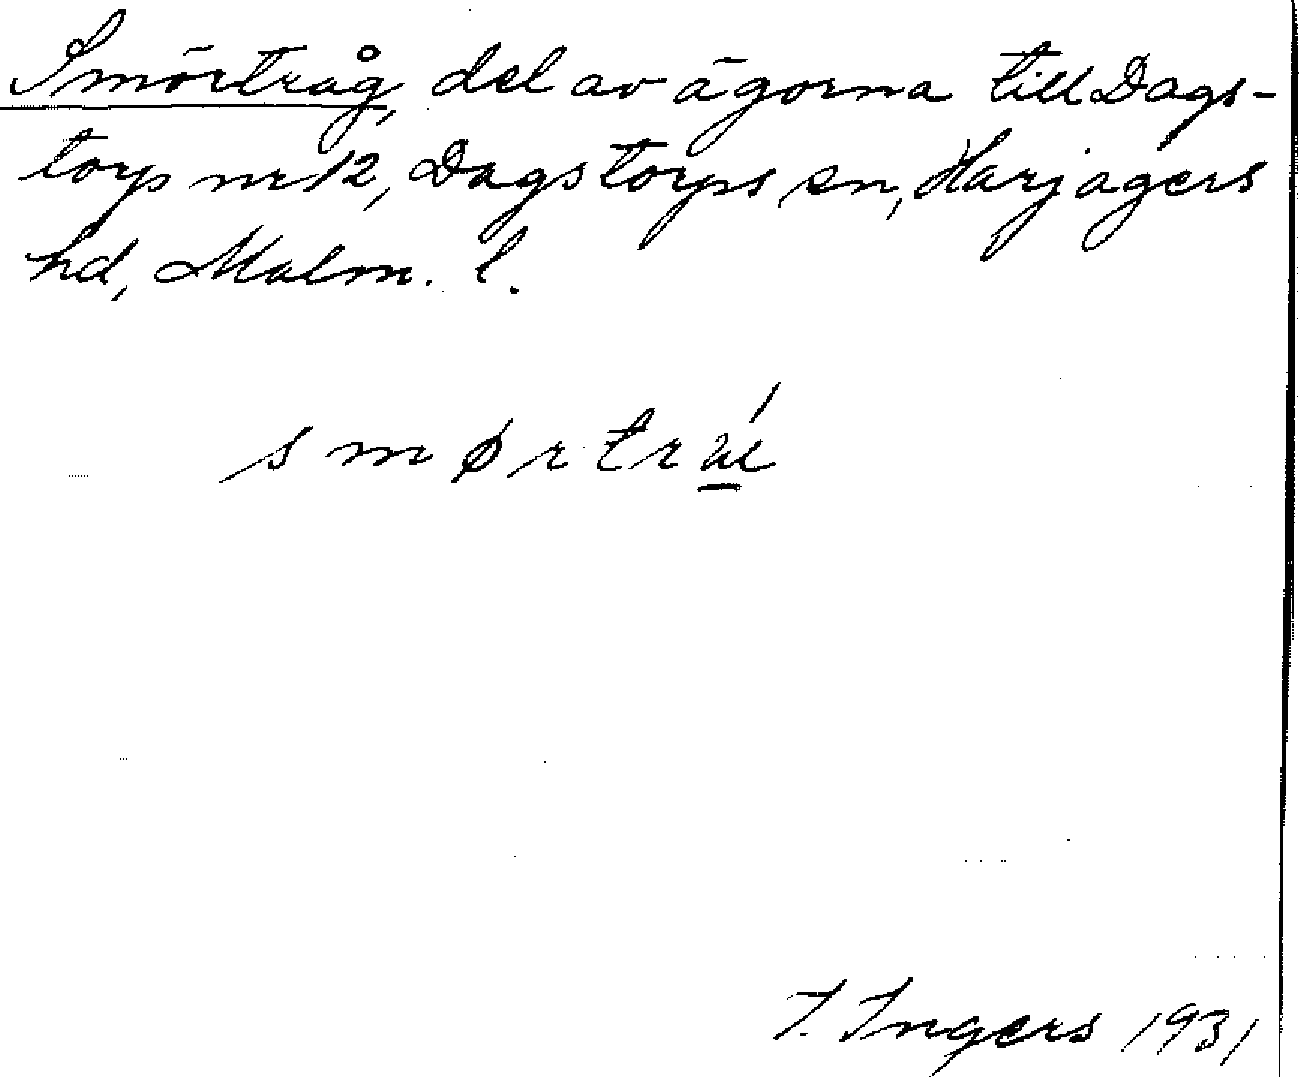 Smörtråg, del av ägorna till Dags-
torp nr 12, Dagstorps sn, Harjagers
hd, Malm. l.
I. Ingers 1931